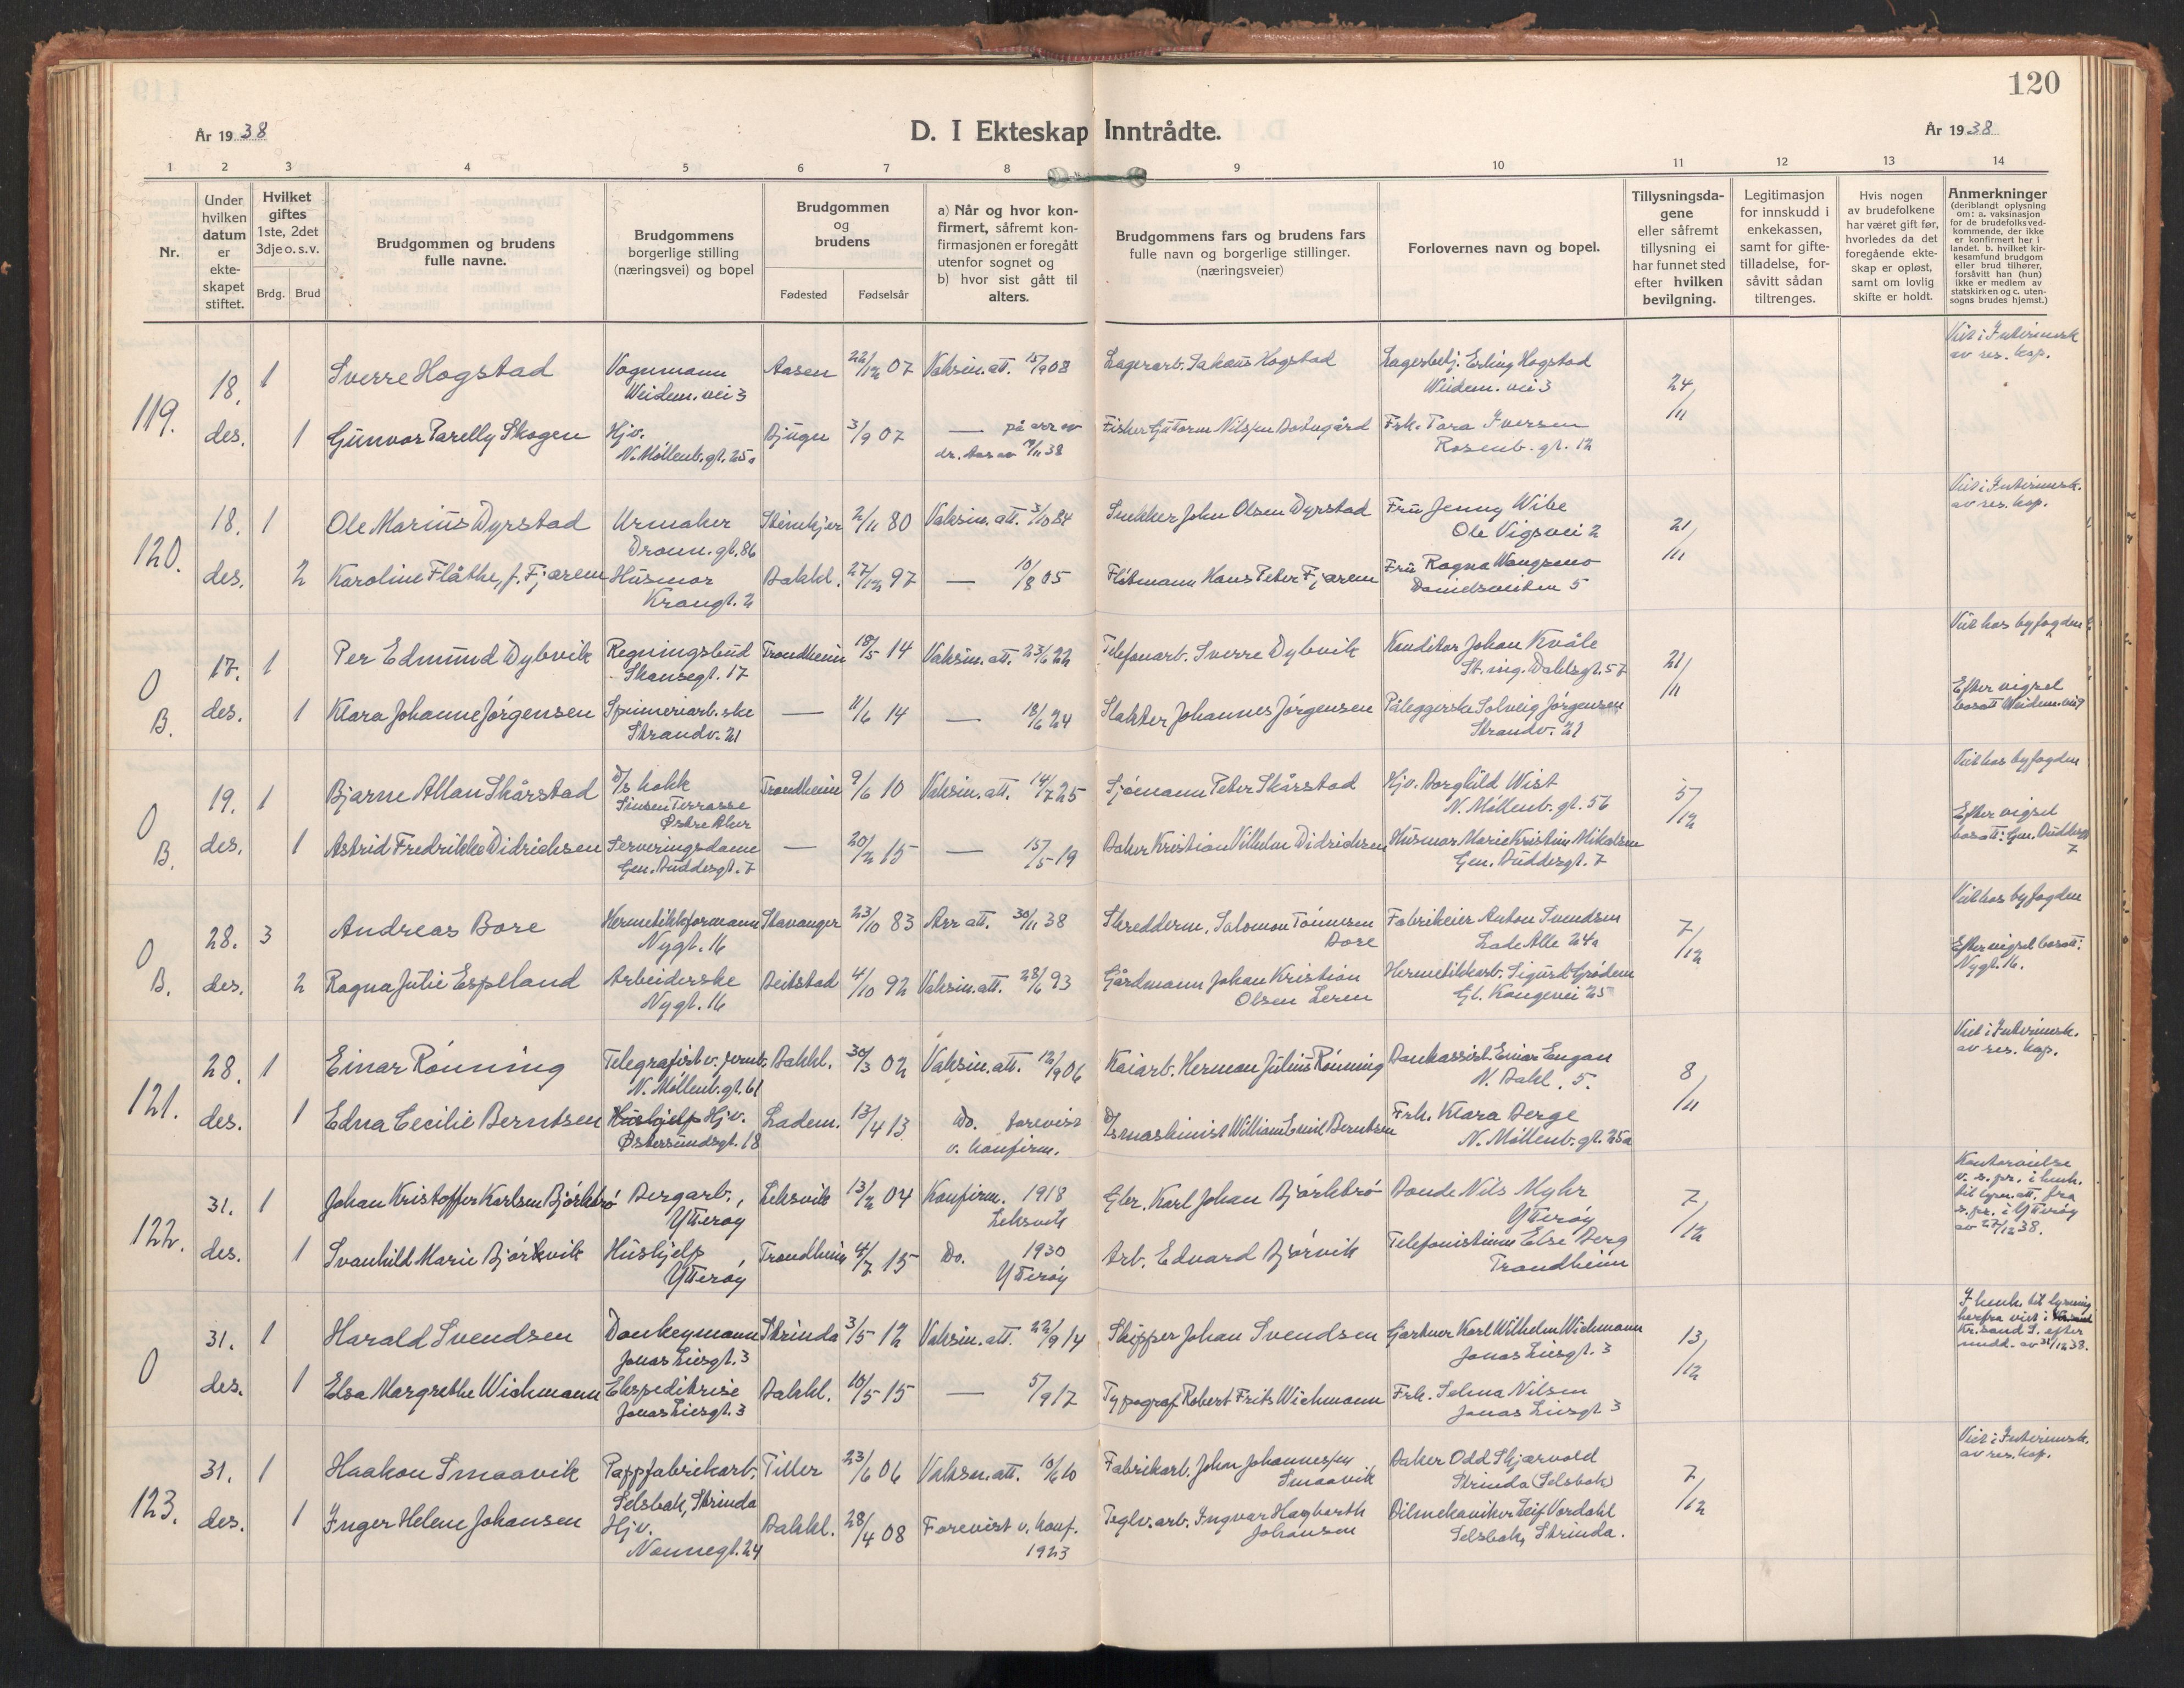 120
År 1938
D. I Ekteskap Inntrådte.
År 1938
1 2 3 4 5 6 7 8 9 10 11 12 13 14
Nr.
Under hvilken datum er ekte-skapet stiftet.
Hvilket giftes 1ste, 2det 3dje o. s. v.
Brdg. Brud
Brudgommen og brudens fulle navne.
Brudgommens borgerlige stilling (næringsvei) og bopel
Brudgommen og brudens
Fødested Fødselsår
a) Når og hvor kon-firmert, såfremt kon-firmasjonen er foregått utenfor sognet og b) hvor sist gått til alters.
Brudgommens fars og brudens fars fulle navn og borgerlige stillinger. (næringsveier)
Forlovernes navn og bopel.
Tillysningsda-gene eller såfremt tillysning ei har funnet sted efter hvilken bevilgning.
Legitimasjon for innskudd i enkekassen, samt for gifte-tilladelse, for-såvitt sådan tiltrenges.
Hvis nogen av brudefolkene har været gift før, hvorledes da det foregående ekte-skap er opløst, samt om lovlig skifte er holdt.
Anmerkninger (deriblandt oplysning om: a. vaksinasjon for de brudefolks ved-kommende, der ikke er konfirmert her i landet. b. hvilket kir-kesamfund brudgom eller brud tilhører, forsåvitt han (hun) ikke er medlem av statskirken og c. uten-sogns brudes hjemst.)
119. 18. des.
1 Sverre Hogstad Vognmann Aasen 22/12 07 Vaksin. att. 15/9 08 Lagerarb. Hogstad Lagerbetj. Erling Hogstad 24/11 Viet i Interimsk.
Weidem. vei 3 Weidem. vei 3 av res. kap.
1 Gunvor Parelly Skogen Hjv. Bjugn 3/9 07 — på arr av Fisker Guttorm Nilssen Frk. Tora Iversen
N. Møllenb. gt. 25a Rosenb. gt. 12
120. 18. des.
1 Ole Marius Dyrstad Urmaker Steinkjer 2/11 80 Vaksin. att. 3/10 84 Snekker John Olsen Dyrstad Fru Jenny Wibe 21/11 Viet i Interimsk.
Dronn. gt. 86 Ole Vigsvei 2 av res. kap.
2 Karoline Flåthe, f. Fjærem Husmor Bakkl. 27/12 97 — 10/8 05 Fløtmann Hans Peter Fjærem Fru Ragna Wangsmo
Krangt. 2 Danielsveiten 5
0 B. 17. des.
1 Per Edmund Dybvik Regningsbud Trondheim 18/5 14 Vaksin. att. 23/6 22 Telefonarb. Sverre Dybvik Konditor Johan Kvåle 21/11 Viet hos byfogden
Skansegt. 17 St. ing. Dahlsgt. 57
1 Klara Johanne Jørgensen Spinneriarb.ske — 11/6 14 — 18/6 24 Slakter Johannes Jørgensen Påleggerske Solveig Jørgensen Efter vigsel
Strandv. 21 Strandv. 21 bosatt Weidem. vei
0 B. 19. des.
1 Bjarne Allan Skårstad D/s kokk Trondheim 9/6 10 Vaksin. att. 14/7 25 Sjømann Peter Skårstad Hjv. Borghild Wist 5/12 Viet hos byfogden
Sinsen Terrasse N. Møllenb. gt. 56
Østre Aker
1 Astrid Fredrikke Didrichsen Serveringsdame — 20/2 15 — 15/5 19 Baker Kristian Vilhelm Didrichsen Husmor Marie Kristine Mikalsen Efter vigsel
Gen. Buddesgt. 7 Gen. Buddesgt. 7 bosatt: Gen. Buddesgt 7
0 B. 28. des.
3 Andreas Bore Hermetikkformann Stavanger 23/10 83 Arr att. 30/11 38 Skredderm. Salomon Tønnesen Fabrikeier Anton Svendsen 7/12 Viet hos byfogden
Nygt. 16 Bore Lade Alle 24a
2 Ragna Julie Espeland Arbeiderske Beitstad 4/10 92 Vaksin. att. 28/6 93 Gårdmann Johan Kristian Hermetikkarb. Sigurd Grødem Efter vigsel bosatt:
Nygt. 16 Olsen Lerem Gl. Kongevei 25 Nygt. 16.
121. 28. des.
1 Einar Rønning Telegrafist v. jernb. Bakkl. 30/3 02 Vaksin. att. 12/9 06 Kaiarb. Herman Julius Rønning Bankassist. Einar Engan 8/11 Viet i Interimsk.
N. Møllenb. gt. 61 N. Bakl. 5. av res. kap.
1 Edna Cecilie Berntsen Hushjelp Hjv. Ladem. 13/4 13 Do. forevist D/smaskinist William Emil Berntsen Frk. Klara Berge
Østersundsgt. 18 v. konfirm. N. Møllenb. gt. 25a
122. 31. des.
1 Johan Kristoffer Karlsen Bjørkbrø Bergarb., Leksvik 13/2 04 Konfirm. 1918 Gbr. Karl Johan Bjørkbrø Bonde Nils Myhr 7/12 Kontorvielse
Ytterøy Leksvik Ytterøy v. s. pr. i henh.
til lysn. att. fra
s. pr. i Ytterøy
av 27/12 38.
1 Svanhild Marie Bjørkvik Hushjelp Trondheim 4/7 15 Do. 1930 Arb. Edvard Bjørvik Telefonistinne Else Berg
Ytterøy Ytterøy Trondheim
0 31. des.
1 Harald Svendsen Donkeymann Strinda 3/5 12 Vaksin. att. 22/9 14 Skipper Johan Svendsen Gartner Karl Wilhelm Wichmann 13/12 I henh. til lysning
Jonas Liesgt. 3 Jonas Liesgt. 3 herfra viet i
Kr.sand S. efter
medd. av 31/12 38.
1 Elsa Margrethe Wichmann Ekspeditrise Bakkl. 10/5 15 — 5/9 17 Typograf Robert Frits Wichmann Frk. Selma Nilsen
Jonas Liesgt. 3 Jonas Liesgt 3
123. 31. des.
1 Haakon Smaavik Pappfabrikarb. Tiller 23/6 06 Vaksin. att. 10/6 10 Fabrikarb. John Johannessen Baker Odd Skjærvold 7/12 Viet i Interimsk.
Selsbak, Strinda Smaavik Strinda (Selsbak) av res. kap.
1 Inger Helene Johansen Hjv. Bakkl. 28/4 08 Forevist v. konf. Teglv.arb. Ingvar Hagbarth Bilmekaniker Leif Vordahl
Nonnegt. 24 1923 Johansen Selsbak, Strinda.